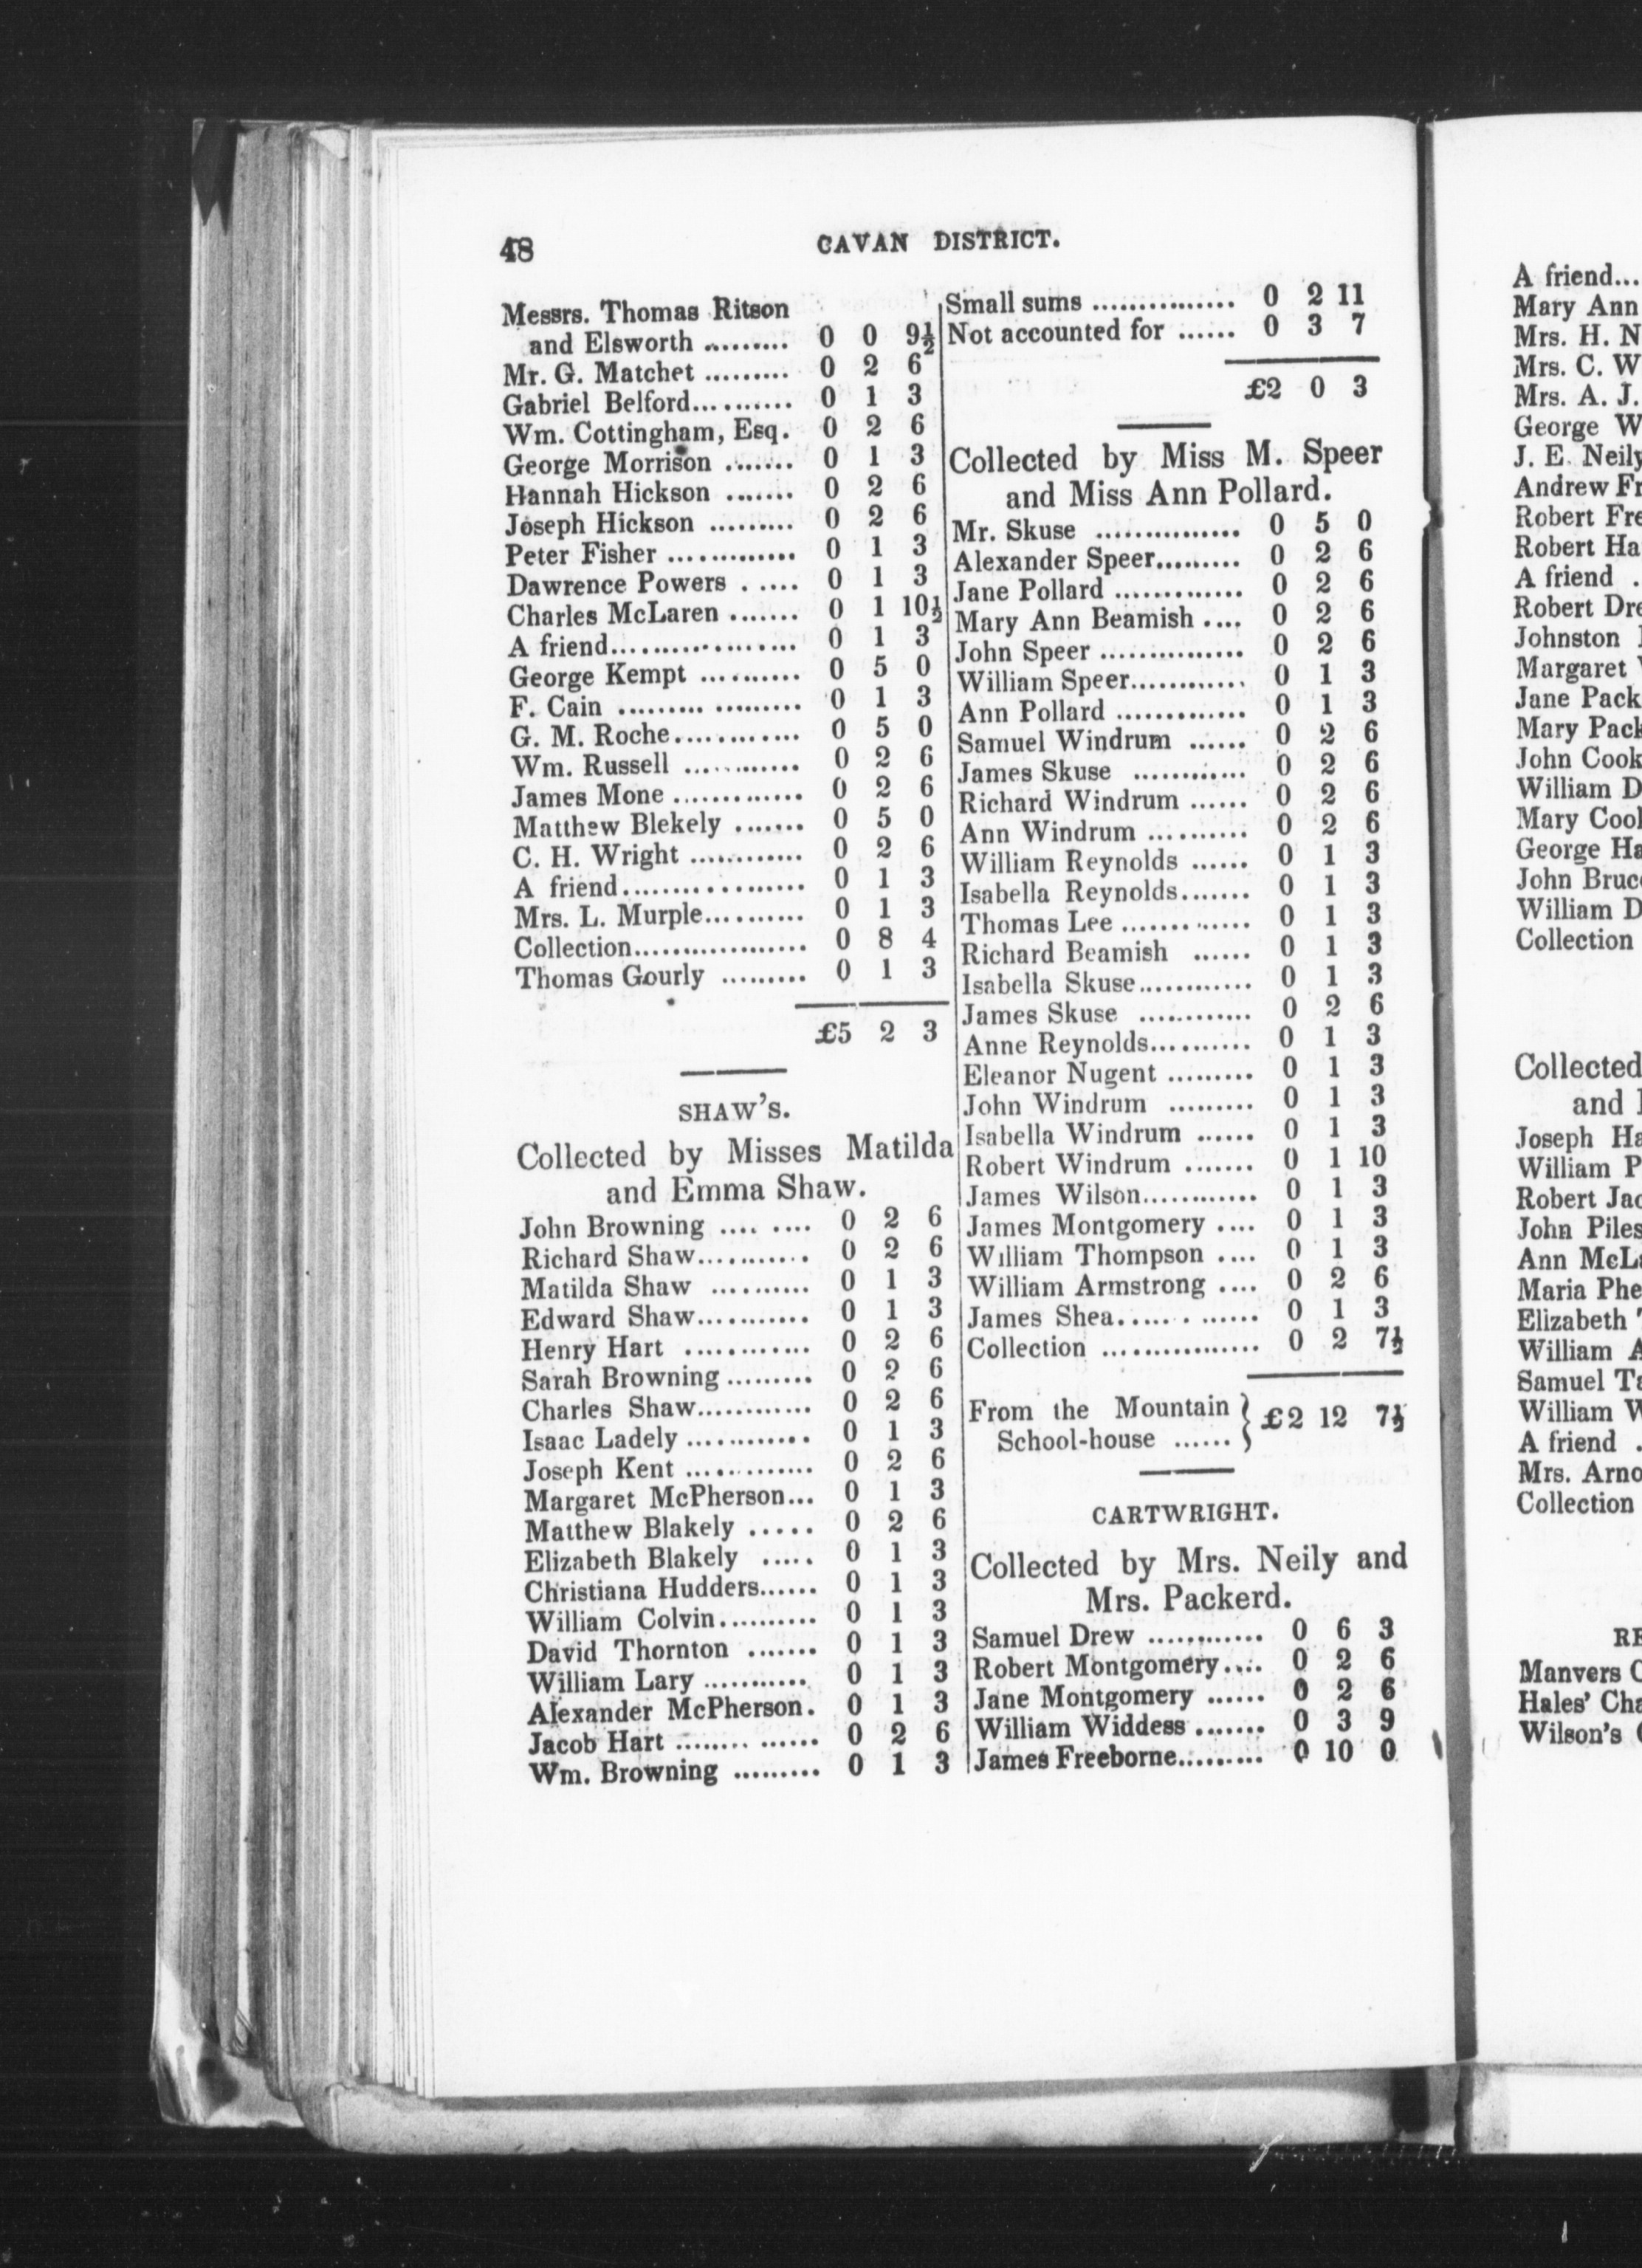 48
CAVAN DISTRICT.
Messrs. Thomas Ritson
and Elsworth ......... 0 0 9½
Mr. G. Matchet ......... 0 2 6
Gabriel Belford.......... 0 1 3
Wm. Cottingham, Esq. 0 2 6
George Morrison ....... 0 1 3
Hannah Hickson ....... 0 2 6
Joseph Hickson ......... 0 2 6
Peter Fisher ............. 0 1 3
Dawrence Powers . ..... 0 1 3
Charles McLaren ....... 0 1 10½
A friend................... 0 1 3
George Kempt .......... 0 5 0
F. Cain ......... ......... 0 1 3
G. M. Roche............. 0 5 0
Wm. Russell ............ 0 2 6
James Mone ............. 0 2 6
Matthew Blekely ....... 0 5 0
C. H. Wright ............ 0 2 6
A friend.................. 0 1 3
Mrs. L. Murple.......... 0 1 3
Collection................. 0 8 4
Thomas Gourly ......... 0 1 3
£5 2 3
SHAW'S.
Collected by Misses Matilda
and Emma Shaw.
John Browning .... .... 0 2 6
Richard Shaw........... 0 2 6
Matilda Shaw .......... 0 1 3
Edward Shaw........... 0 1 3
Henry Hart ............ 0 2 6
Sarah Browning......... 0 2 6
Charles Shaw............ 0 2 6
Isaac Ladely ............ 0 1 3
Joseph Kent ............. 0 2 6
Margaret McPherson... 0 1 3
Matthew Blakely ..... 0 2 6
Elizabeth Blakely ..... 0 1 3
Christiana Hudders...... 0 1 3
William Colvin.......... 0 1 3
David Thornton ....... 0 1 3
William Lary ........... 0 1 3
Alexander McPherson. 0 1 3
Jacob Hart ........ ...... 0 2 6
Wm. Browning ......... 0 1 3
Small sums ............... 0 2 11
Not accounted for ...... 0 3 7
£2 0 3
Collected by Miss M. Speer
and Miss Ann Pollard.
Mr. Skuse ............... 0 5 0
Alexander Speer......... 0 2 6
Jane Pollard ............. 0 2 6
Mary Ann Beamish .... 0 2 6
John Speer ............... 0 2 6
William Speer............ 0 1 3
Ann Pollard .............. 0 1 3
Samuel Windrum ...... 0 2 6
James Skuse ............ 0 2 6
Richard Windrum ...... 0 2 6
Ann Windrum .......... 0 2 6
William Reynolds ...... 0 1 3
Isabella Reynolds....... 0 1 3
Thomas Lee ............. 0 1 3
Richard Beamish ...... 0 1 3
Isabella Skuse............ 0 1 3
James Skuse ............ 0 2 6
Anne Reynolds.......... 0 1 3
Eleanor Nugent ......... 0 1 3
John Windrum ......... 0 1 3
Isabella Windrum ...... 0 1 3
Robert Windrum ....... 0 1 10
James Wilson............ 0 1 3
James Montgomery .... 0 1 3
William Thompson .... 0 1 3
William Armstrong .... 0 2 6
James Shea...... . ...... 0 1 3
Collection ................ 0 2 7½
From the Mountain
School-house ...... } £2 12 7½
CARTWRIGHT.
Collected by Mrs. Neily and
Mrs. Packerd.
Samuel Drew ............ 0 6 3
Robert Montgomery.... 0 2 6
Jane Montgomery ...... 0 2 6
William Widdess ....... 0 3 9
James Freeborne......... 0 10 0
A friend...
Mary Ann
Mrs. H. N
Mrs. C. W
Mrs. A. J.
George W
J. E. Neily
Andrew Fr
Robert Fre
Robert Ha
A friend .
Robert Dre
Johnston
Margaret
Jane Pack
Mary Pack
John Cook
William D
Mary Cool
George Ha
John Bruce
William D
Collection
Collected
and
Joseph Ha
William P
Robert Jac
John Piles
Ann McL
Maria Phe
Elizabeth
William A
Samuel Ta
William W
A friend .
Mrs. Arno
Collection
RE
Manvers C
Hales' Cha
Wilson's